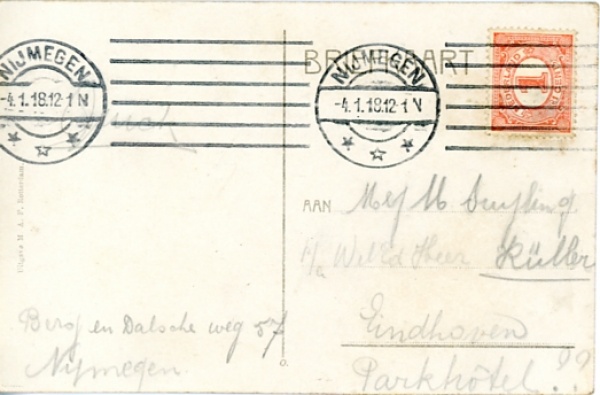 NIJMEGEN
-4.1.18.12-1 N
BRIEFKAART
NIJMEGEN
-4.1.18.12-1 N
NEDERLAND
1
AAN Mej M Suyling
p/a WelEd Heer Küller
Eindhoven
Parkhôtel!??
Berg en Dalsche weg 57
Nijmegen
Uitgave M. A. F. Rotterdam